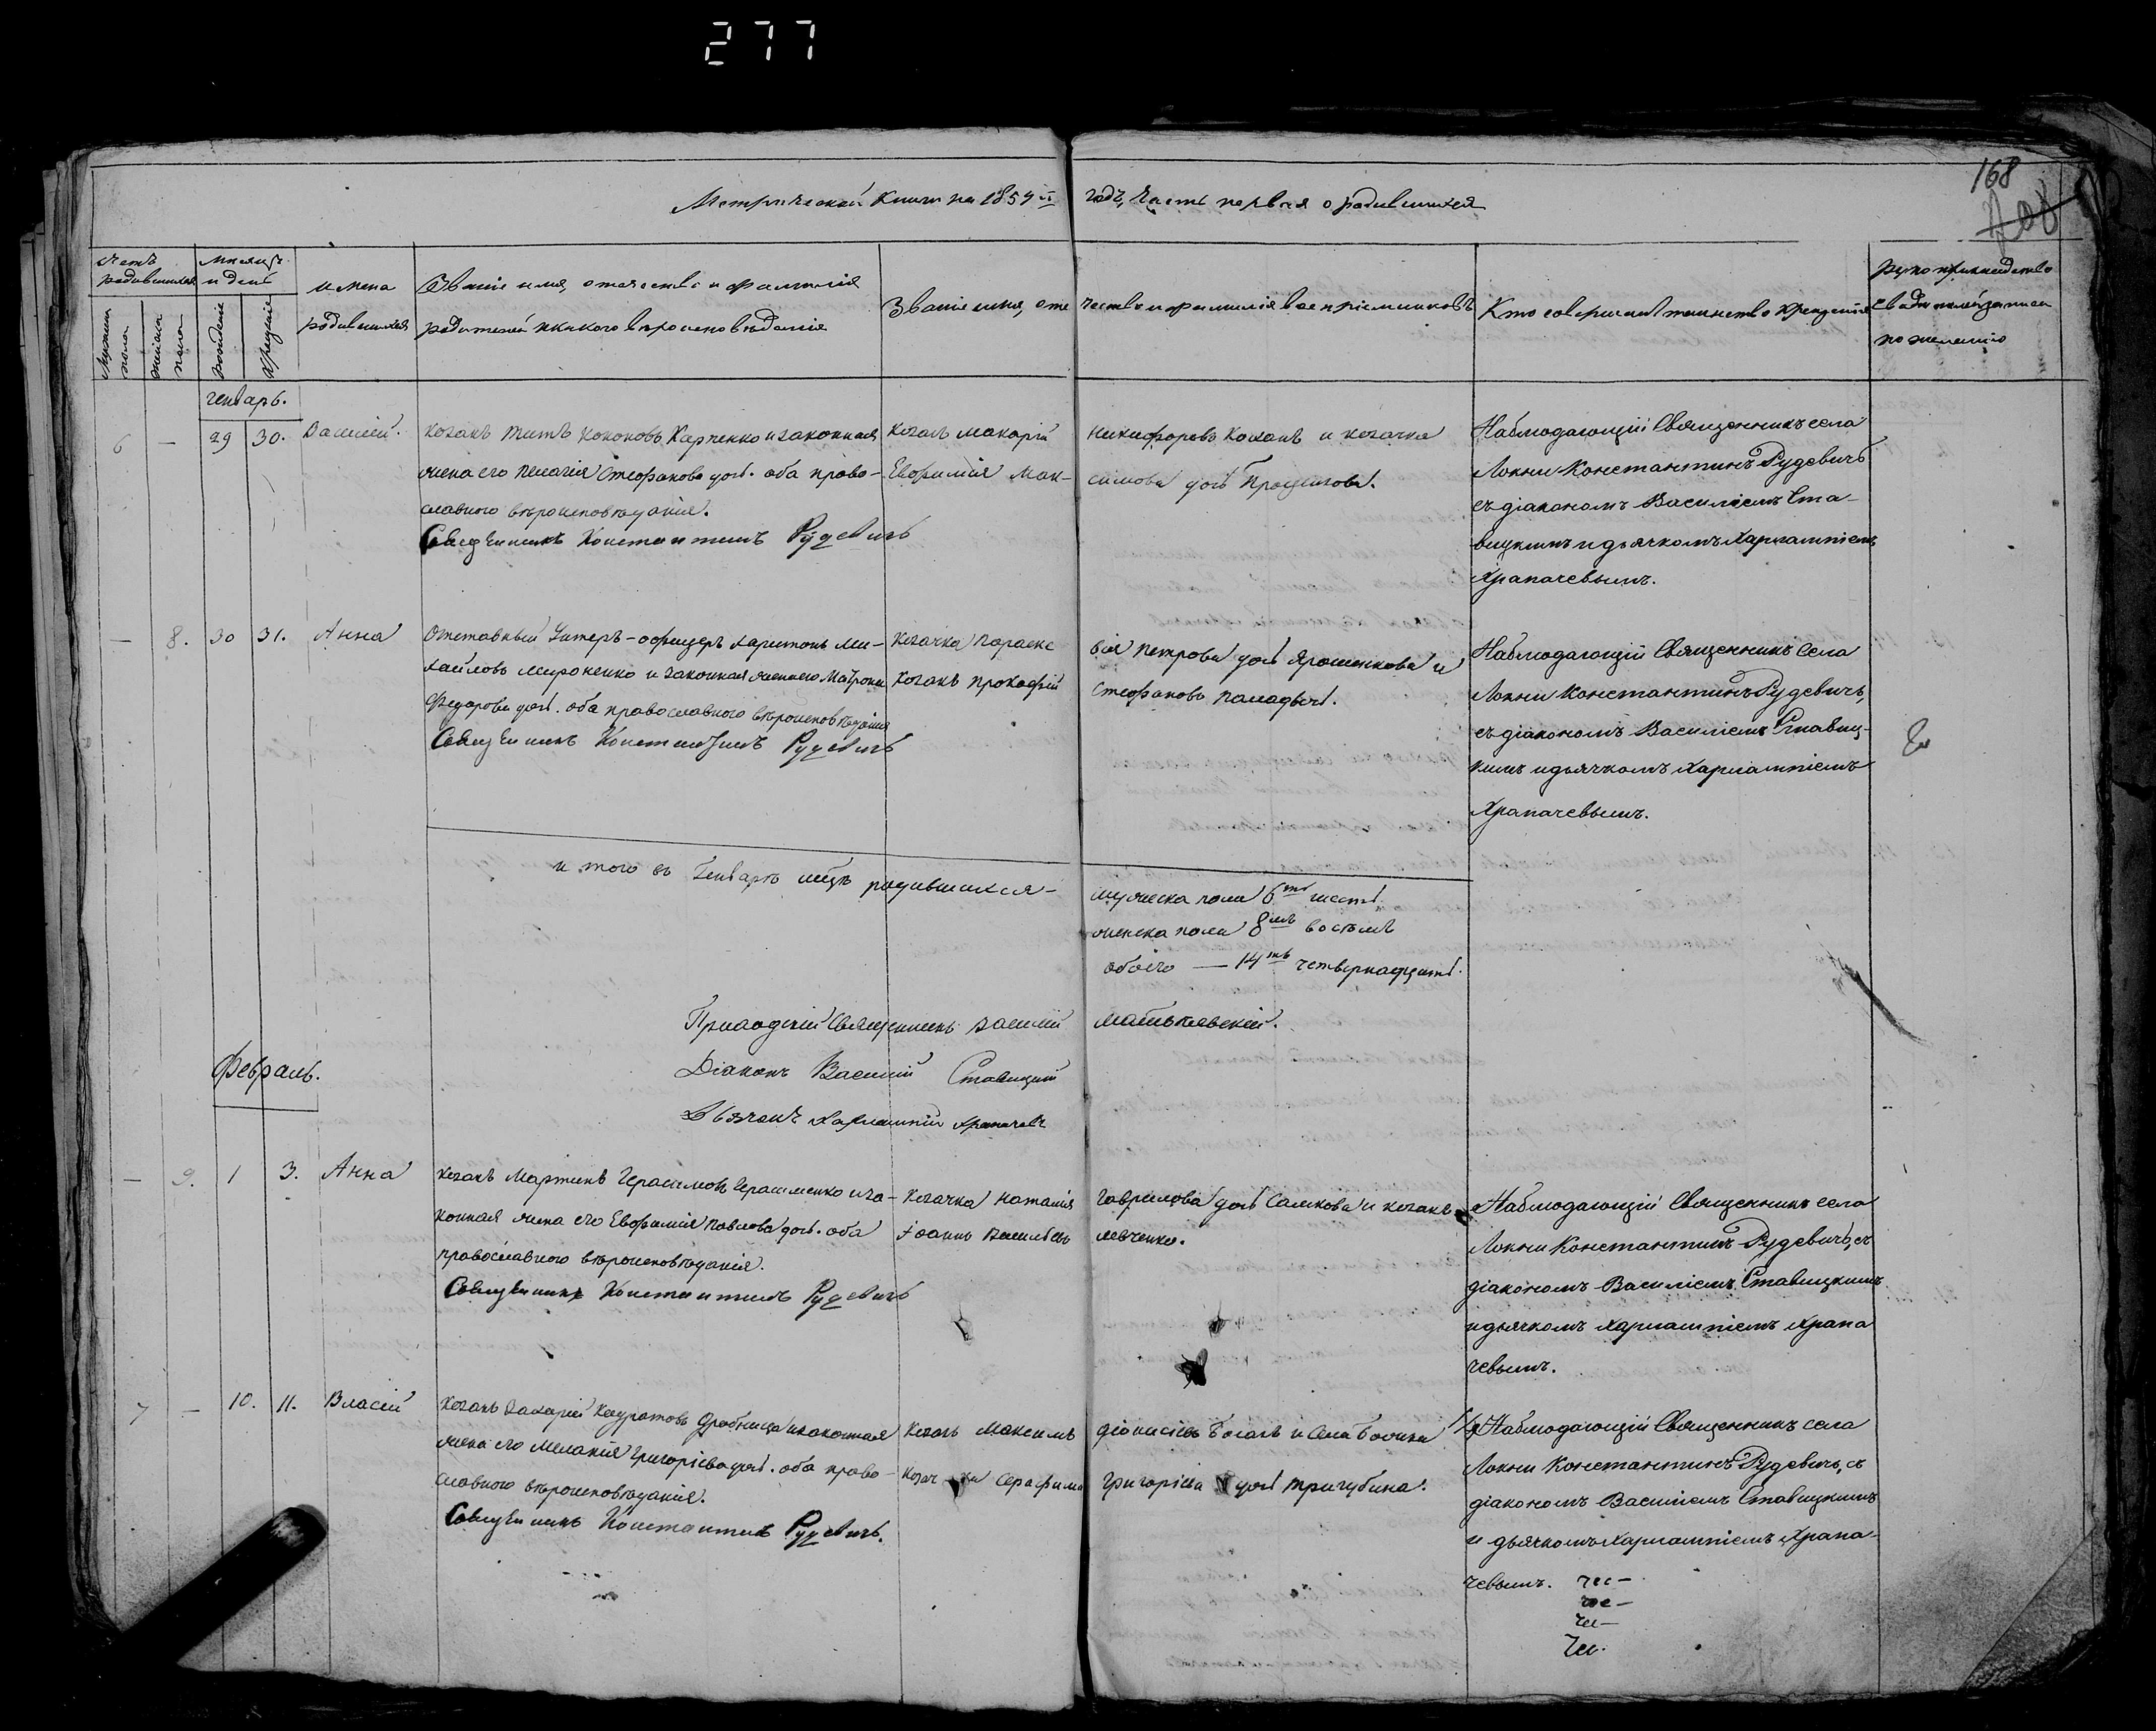 277
168
Метрической Книги на 1854й годъ, Часть первая о родившихся
Счетъ родившихся
Мѣсяцъ и день
Имена родившихся
Званіе имя, отечество и фамилія родителей и какого вѣроисповѣданія
Званіе имя, отечество и фамилія воспріемниковъ
Кто совершалъ таинство крещенія
Рукоприкладство свидѣтелей записи по желанію
Мужеска пола
Женска пола
Рожденіе
Крещеніе
Генварь.
6 — 29 30. Василій.
Козакъ Титъ Кононовъ Харченко и законная
жена его Пелагія Стефанова дочь. оба право-
славного вѣроисповѣданія.
Священникъ Константинъ Рудевичъ
Козакъ Макарій Никифоровъ Коханъ и козачка
Евфимія Максимова дочь Проценкова.
Наблюдающій Священникъ села
Локни Константинъ Рудевичъ
съ діакономъ Василіемъ Ста-
вицкимъ и дьячкомъ Харлампіемъ
Храпачевымъ.
— 8. 30 31. Анна
Отставный Унтеръ-офицеръ Харитонъ Ми-
хайловъ Мироненко и законная жена его Матрона
Федорова дочь. оба православного вѣроисповѣданія
Священникъ Константинъ Рудевичъ
Козачка Параскевія Петрова дочь Ярошенкова и
Козакъ Прокофій Стефановъ
Наблюдающій Священникъ села
Локни Константинъ Рудевичъ,
съ діакономъ Василіемъ Ставиц-
кимъ и дьячкомъ Харлампіемъ
Храпачевымъ.
и того въ Генварѣ мцѣ родившихся —
мужеска пола 6ть шесть
женска пола 8мъ восемъ
обоего — 14ть четырнадцать.
Приходскій Священникъ Василій
Діаконъ Василій Ставицкій
Дьячокъ Харлампій Храпачевъ
Февраль.
— 9. 1 3. Анна
Козакъ Мартинъ Герасимовъ Герасименко и за-
конная жена его Евфимія Павлова дочь. оба
православного вѣроисповѣданія.
Священникъ Константинъ Рудевичъ
Козачка Наталія Гаврилова дочь Салкова и козакъ
Іоаннъ Васильевъ Левченко.
Наблюдающій Священникъ села
Локни Константинъ Рудевичъ, съ
діакономъ Василіемъ Ставицкимъ
и дьячкомъ Харлампіемъ Храпа
чевымъ.
7 — 10. 11. Власій
Козакъ Захарій Кондратовъ Дробница и законная
жена его Меланія Григоріева дочь. оба право-
славного вѣроисповѣданія.
Священникъ Константинъ Рудевичъ.
Козакъ Максимъ Діонисіевъ
Козачка Серафима Григоріева дочь Тригубина.
Наблюдающій Священникъ села
Локни Константинъ Рудевичъ, съ
діакономъ Василіемъ Ставицкимъ
и дьячкомъ Харлампіемъ Храпа-
чевымъ.